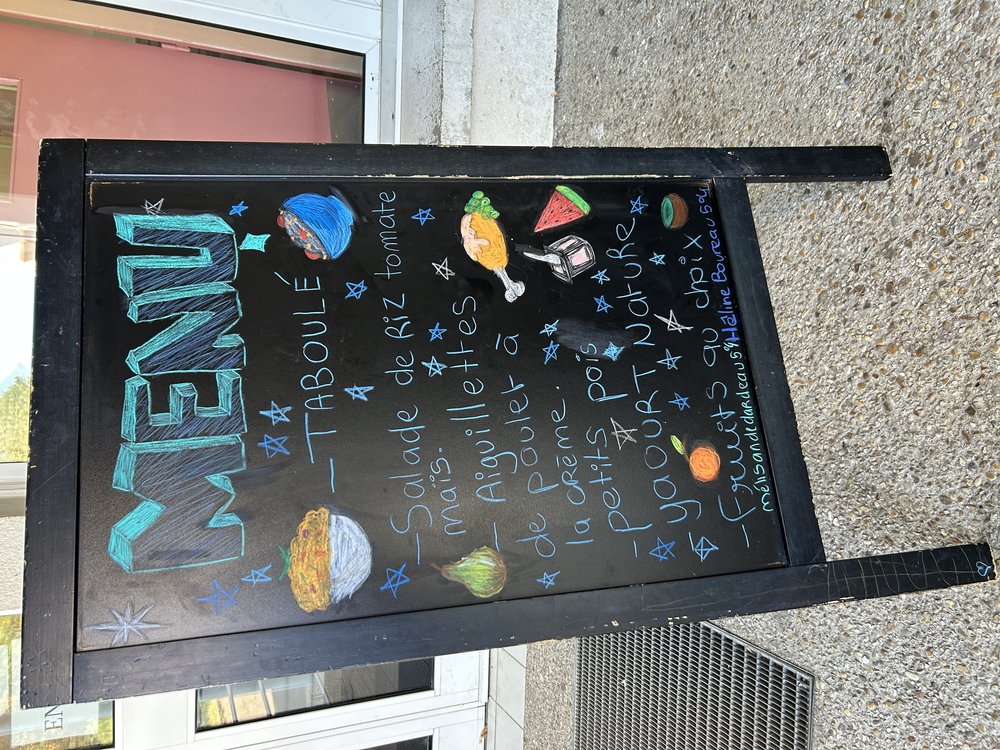 MENU
— TABOULÉ
— Salade de Riz tomate
maïs.
— Aiguillettes
de poulet à
la crème.
- petits pois
- yaourt Nature
- Fruits au choix
mélisande dardeau 5°4 Héline Boureau 5°4
EN